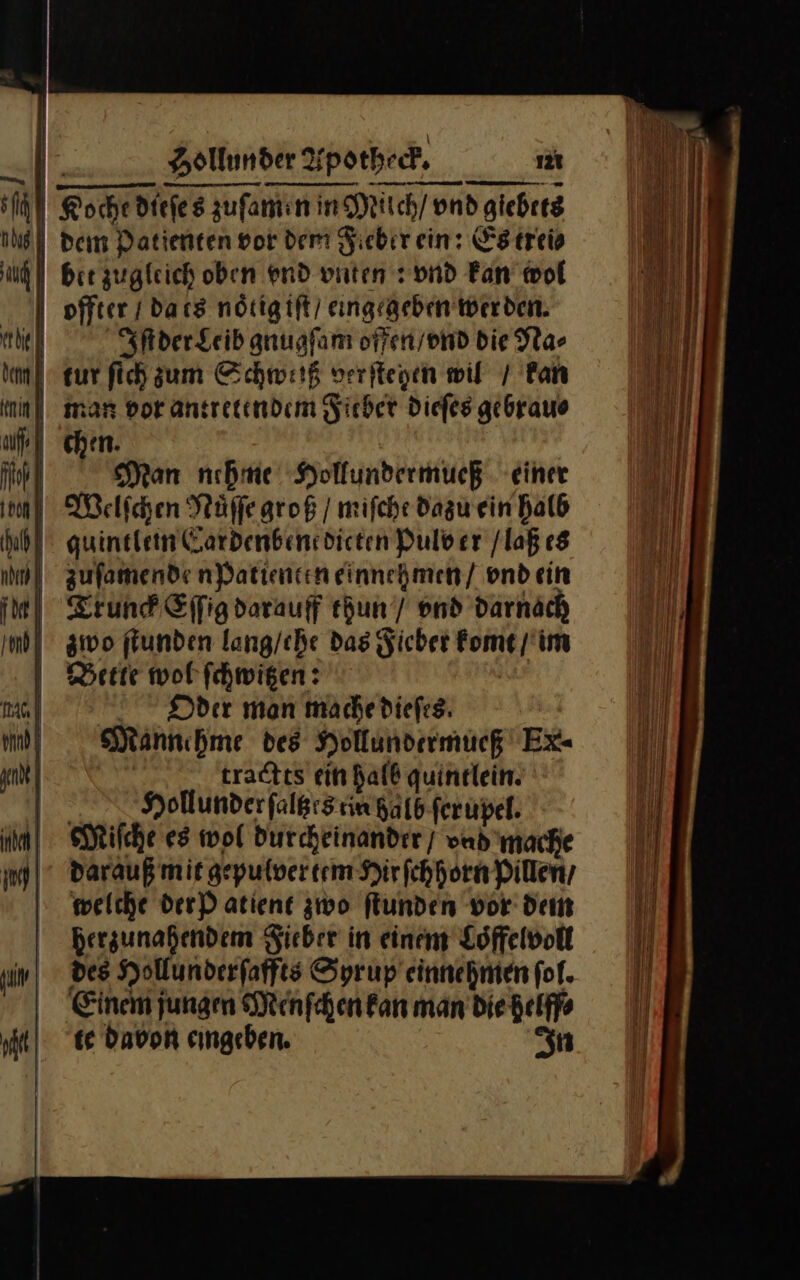 Hollunder Apotheck. 121
Koche dieſes zuſamen in Milch/ vnd giebets
dem Patienten vor dem Fieber ein: Es trei⸗
bet zugleich oben vnd vnten : vnd kan wol
offter / da es noͤtig iſt/ eingegeben werden.
Iſt der Leib gnugſam offen/vnd die Na⸗
tur ſich zum Schweiß verſtehen wil / kan
man vor antretendem Fieber dieſes gebrau⸗
chen.
Man nehme Hollundermueß einer
Welſchen Nuͤſſe groß / miſche dazu ein halb
quintlein Cardenbenedicten Pulver / laß es
zuſamen den Patienten einnehmen / vnd ein
Trunck Eſſig darauff thun / vnd darnach
zwo ſtunden lang/ehe das Fieber komt / im
Bette wol ſchwitzen:
Oder man mache dieſes.
Man nehme des Hollundermueß Ex-
tractts ein halb quintlein.
Hollunderſaltzes ein halb ſcrupel.
Miſche es wol durcheinander / vnd mache
darauß mit gepulvertem Hirſchhorn Pillen/
welche der Patient zwo ſtunden vor dem
herzunahendem Fieber in einem Loͤffelvoll
des Hollunderſaffts Syrup einnehmen ſol.
Einem jungen Menſchen kan man die helff⸗
te davon eingeben. In